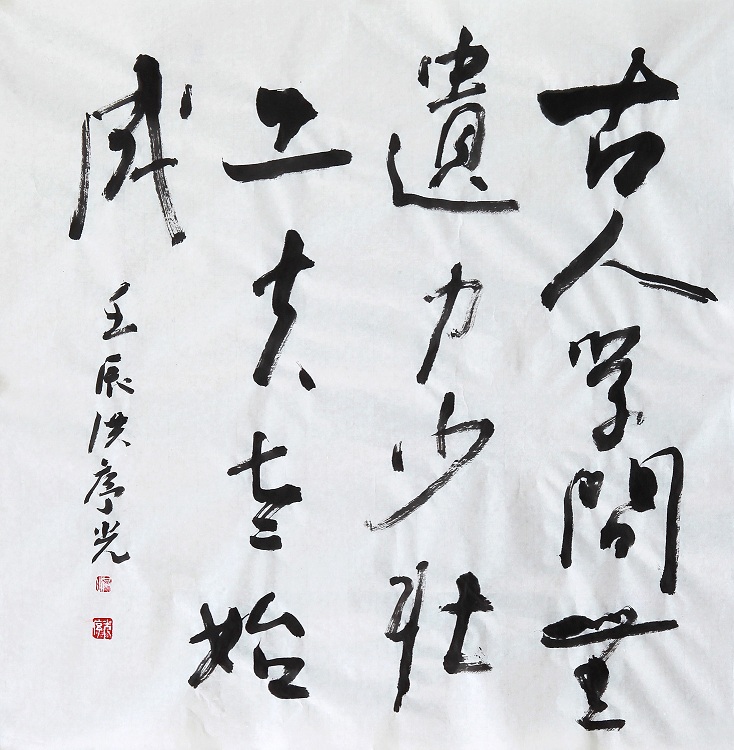 古人学問無
遺力少壮
工夫老始
成
壬辰洪序光